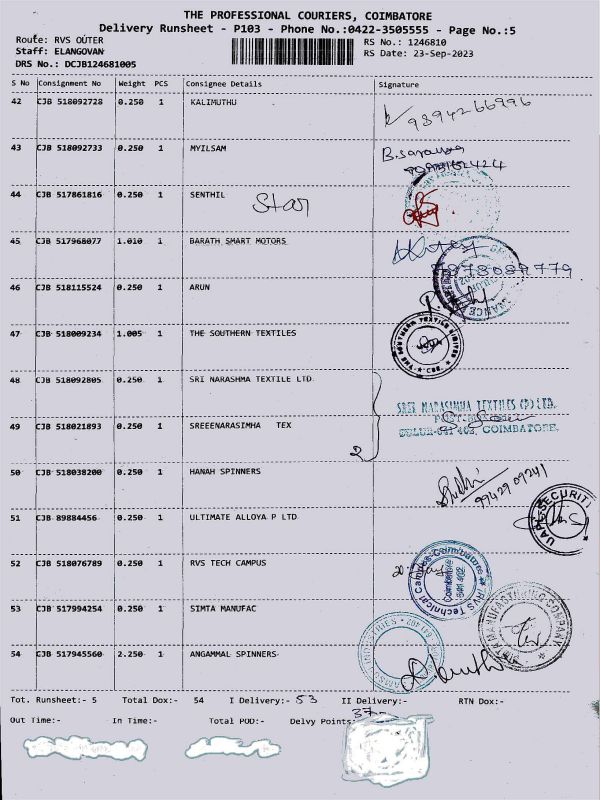 THE PROFESSIONAL COURIERS, COIMBATORE
Delivery Runsheet - P103 - Phone No.:0422-3505555 - Page No.:5
Route: RVS OUTER
RS No.: 1246810
Staff: ELANGOVAN
RS Date: 23-Sep-2023
DRS No.: DCJB124681005
S No Consignment No Weight PCS Consignee Details Signature
42 CJB 518092728 0.250 1 KALIMUTHU 9394266996
43 CJB 518092733 0.250 1 MYILSAM
44 CJB 517861816 0.250 1 SENTHIL Star
45 CJB 517968077 1.010 1 BARATH SMART MOTORS
46 CJB 518115524 0.250 1 ARUN
47 CJB 518009234 1.005 1 THE SOUTHERN TEXTILES
48 CJB 518092805 0.250 1 SRI NARASHMA TEXTILE LTD
SREE NARASIMHA TEXTILES (P) LTD.
49 CJB 518021893 0.250 1 SREEENARASIMHA TEX
SULUR-641 402, COIMBATORE.
2
50 CJB 518038200 0.250 1 HANAH SPINNERS
51 CJB 89884456 0.250 1 ULTIMATE ALLOYA P LTD
52 CJB 518076789 0.250 1 RVS TECH CAMPUS
RVS Technical Campus-Coimbatore
Coimbatore
641 402
53 CJB 517994254 0.250 1 SIMTA MANUFAC
54 CJB 517945560 2.250 1 ANGAMMAL SPINNERS
Tot. Runsheet:- 5 Total Dox:- 54 I Delivery:- 53 II Delivery:- RTN Dox:-
Out Time:- In Time:- Total POD:- Delvy Points: 37